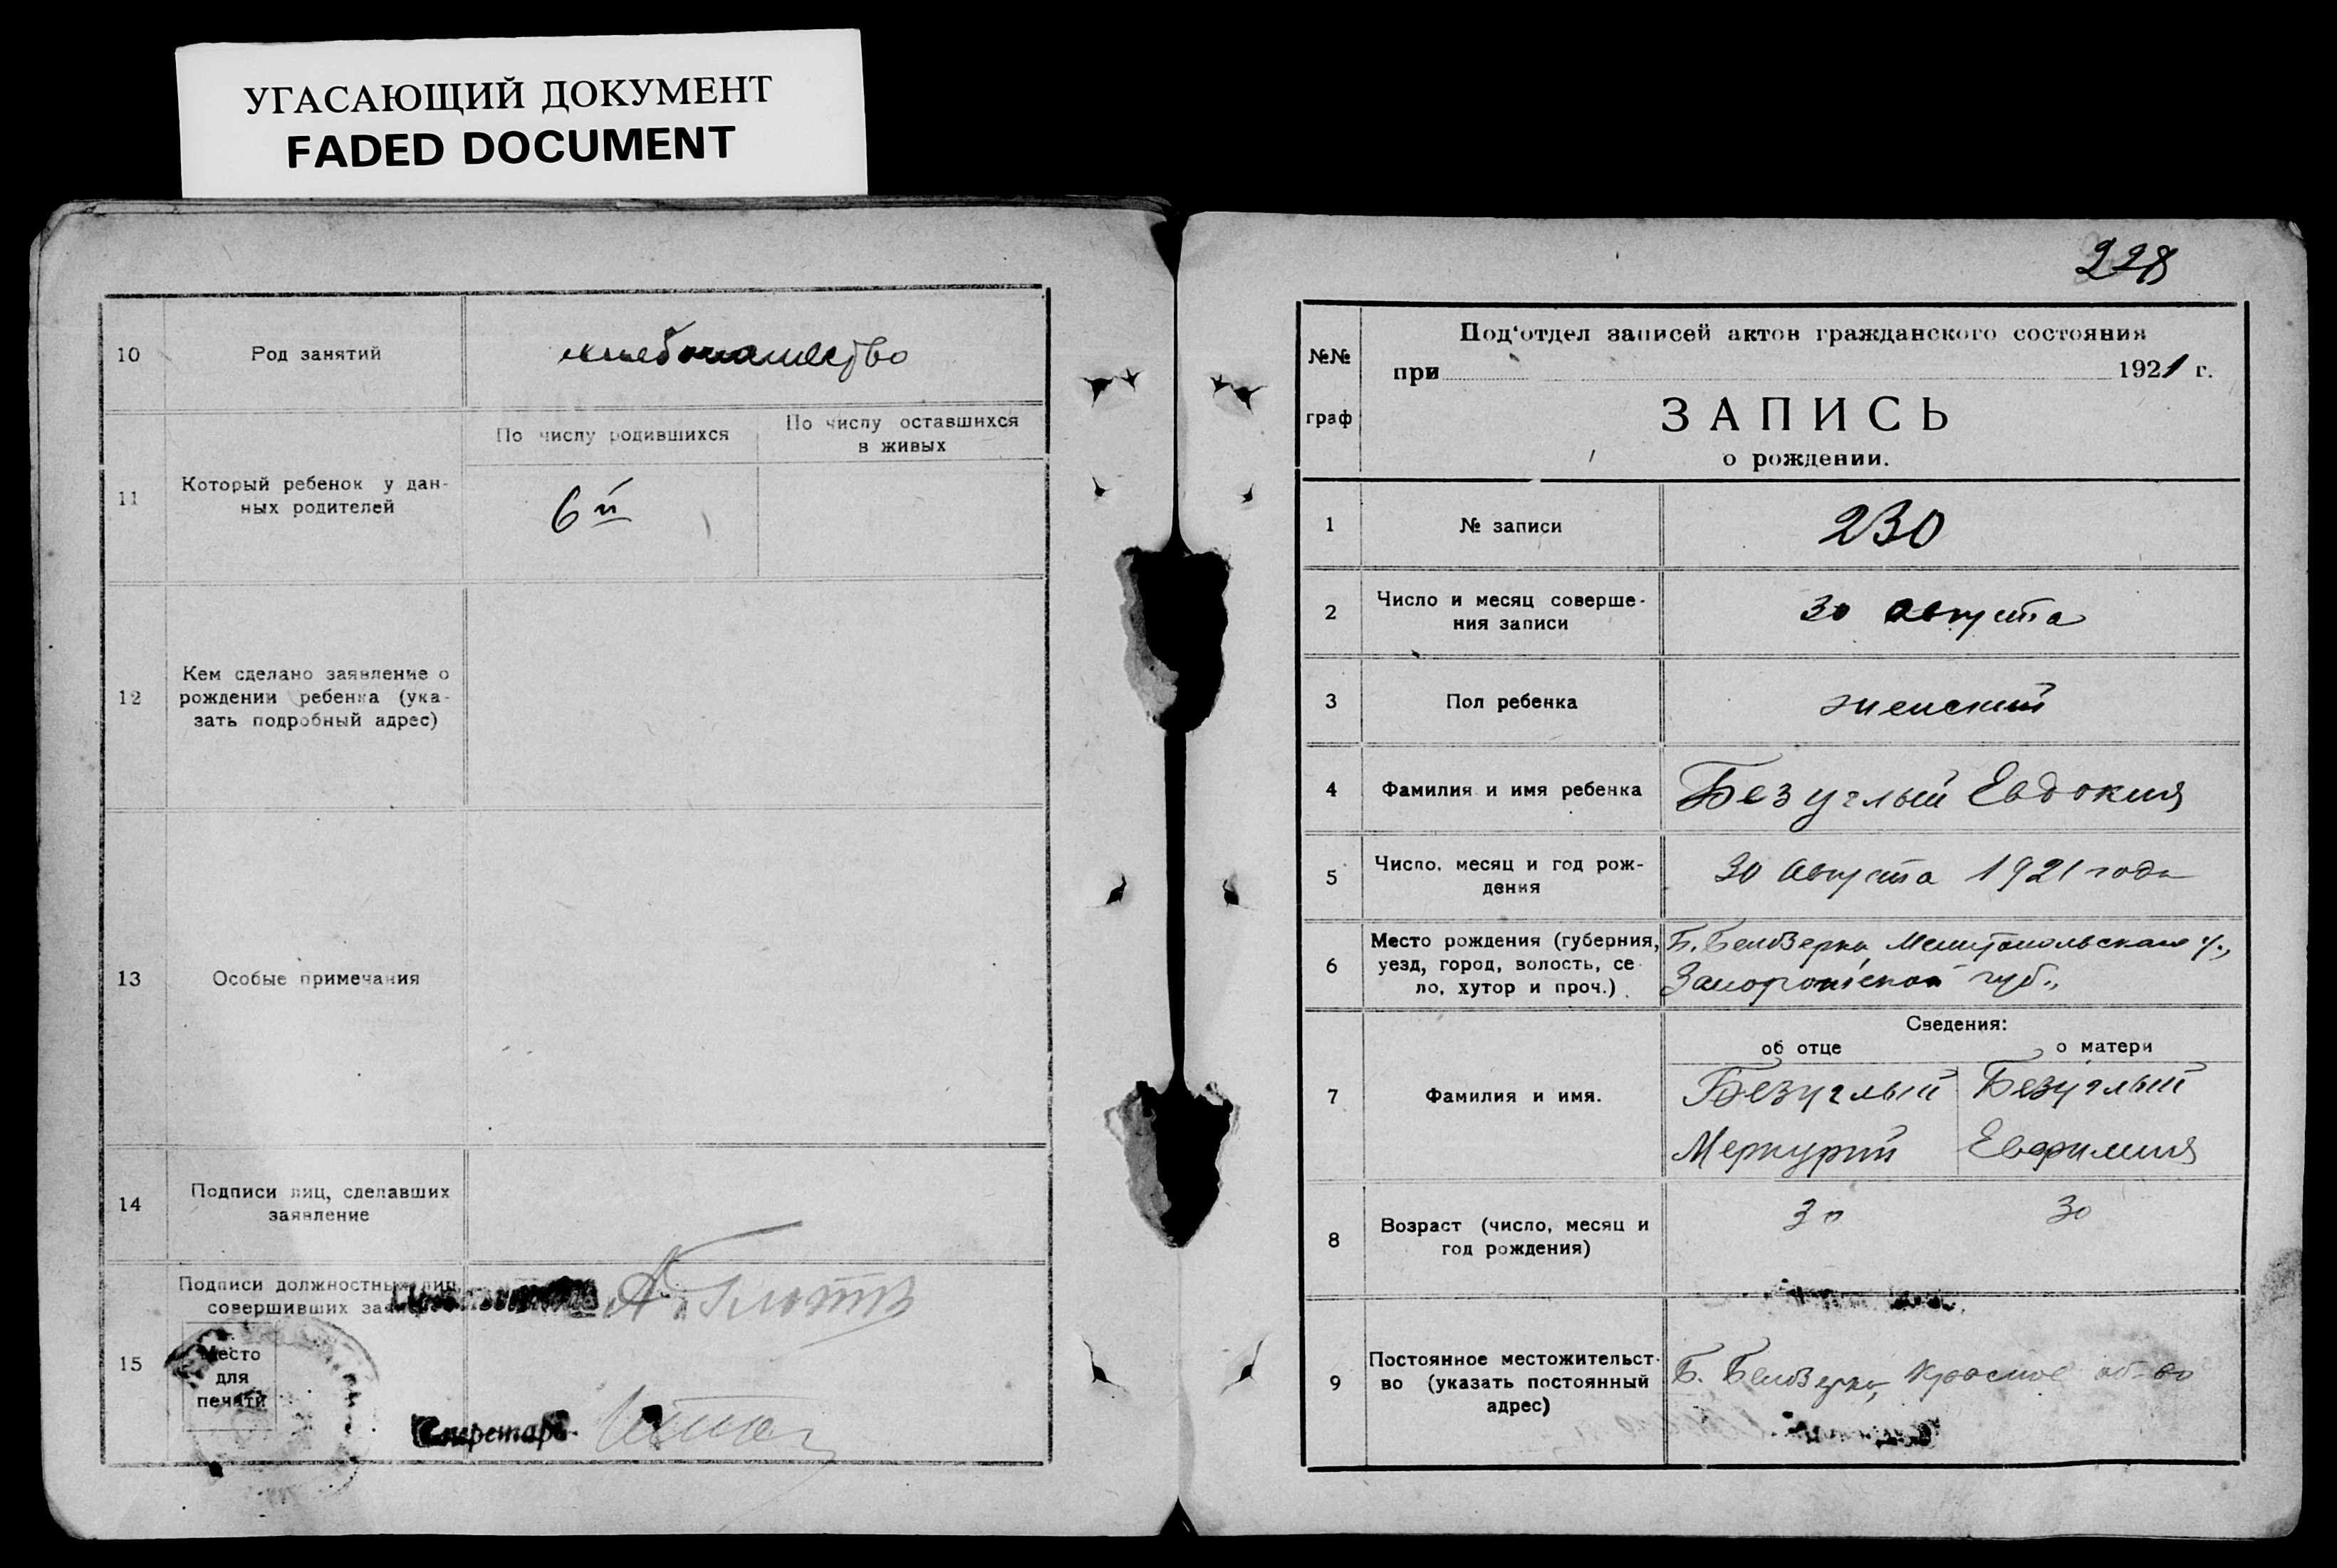 УГАСАЮЩИЙ ДОКУМЕНТ
FADED DOCUMENT
10
Род занятий
хлебопашество
11
Который ребенок у дан-
ных родителей
По числу родившихся
По числу оставшихся
в живых
6й
12
Кем сделано заявление о
рождении ребенка (ука-
зать подробный адрес)
13
Особые примечания
14
Подписи лиц, сделавших
заявление
15
Подписи должностных лиц,
совершивших
Место
для
печати
А.
Секретарь
228
№№
граф
Под‘отдел записей актов гражданского состояния
при 1921 г.
ЗАПИСЬ
о рождении.
1
№ записи
230
2
Число и месяц соверше-
ния записи
30 августа
3
Пол ребенка
женский
4
Фамилия и имя ребенка
Безуглый Евдокия
5
Число, месяц и год рож-
дения
30 августа 1921 года
6
Место рождения (губерния,
уезд, город, волость, се-
ло, хутор и проч.)
Б. Белозерка, Мелитопольского у.,
Запорожской губ.,
Сведения:
об отце
о матери
7
Фамилия и имя.
Безуглый
Меркурий
Безуглый
Евфимия
8
Возраст (число, месяц и
год рождения)
30
30
9
Постоянное местожительст-
во (указать постоянный
адрес)
Б. Белозерка, Красное об-во